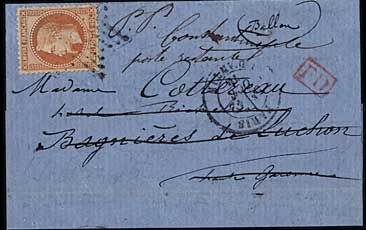 EMPIRE FRANÇAIS
P.P.
Ballon
Constantinople
poste restante
PD
Madame Cottereau
PARIS
Bagnères de Luchon
haute Garonne